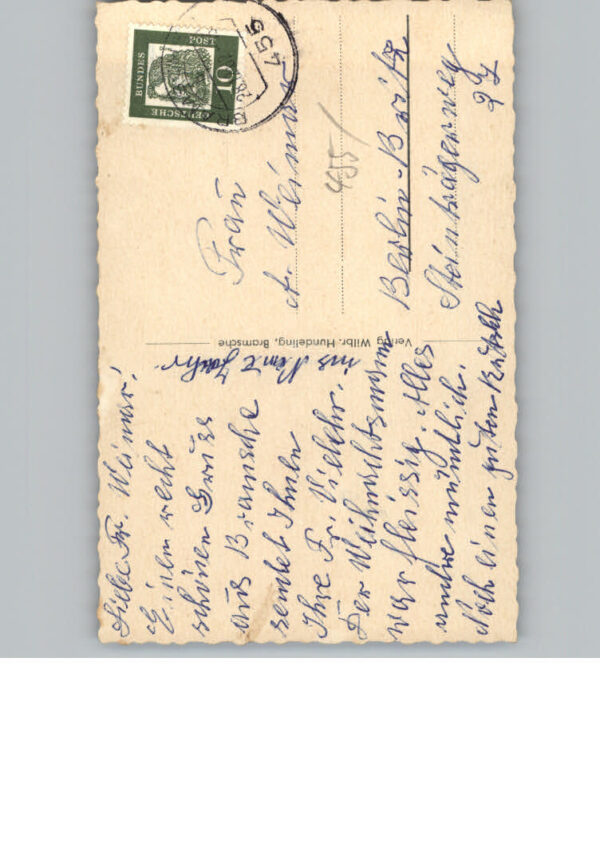 Liebe Fr. Weimar!
Einen recht
schönen Gruss
aus Bramsche
sendet Ihnen
Ihre Fr.
Der Weihnachtsmann
war fleissig. Alles
andre mündlich.
Noch einen guten Rutsch
ins Neue Jahr
Verlag Wilbr. Hundeling, Bramsche
DEUTSCHE
BUNDES
POST
10
455
455/
Frau
A. Weimar
Berlin-Britz
Steinträgerweg